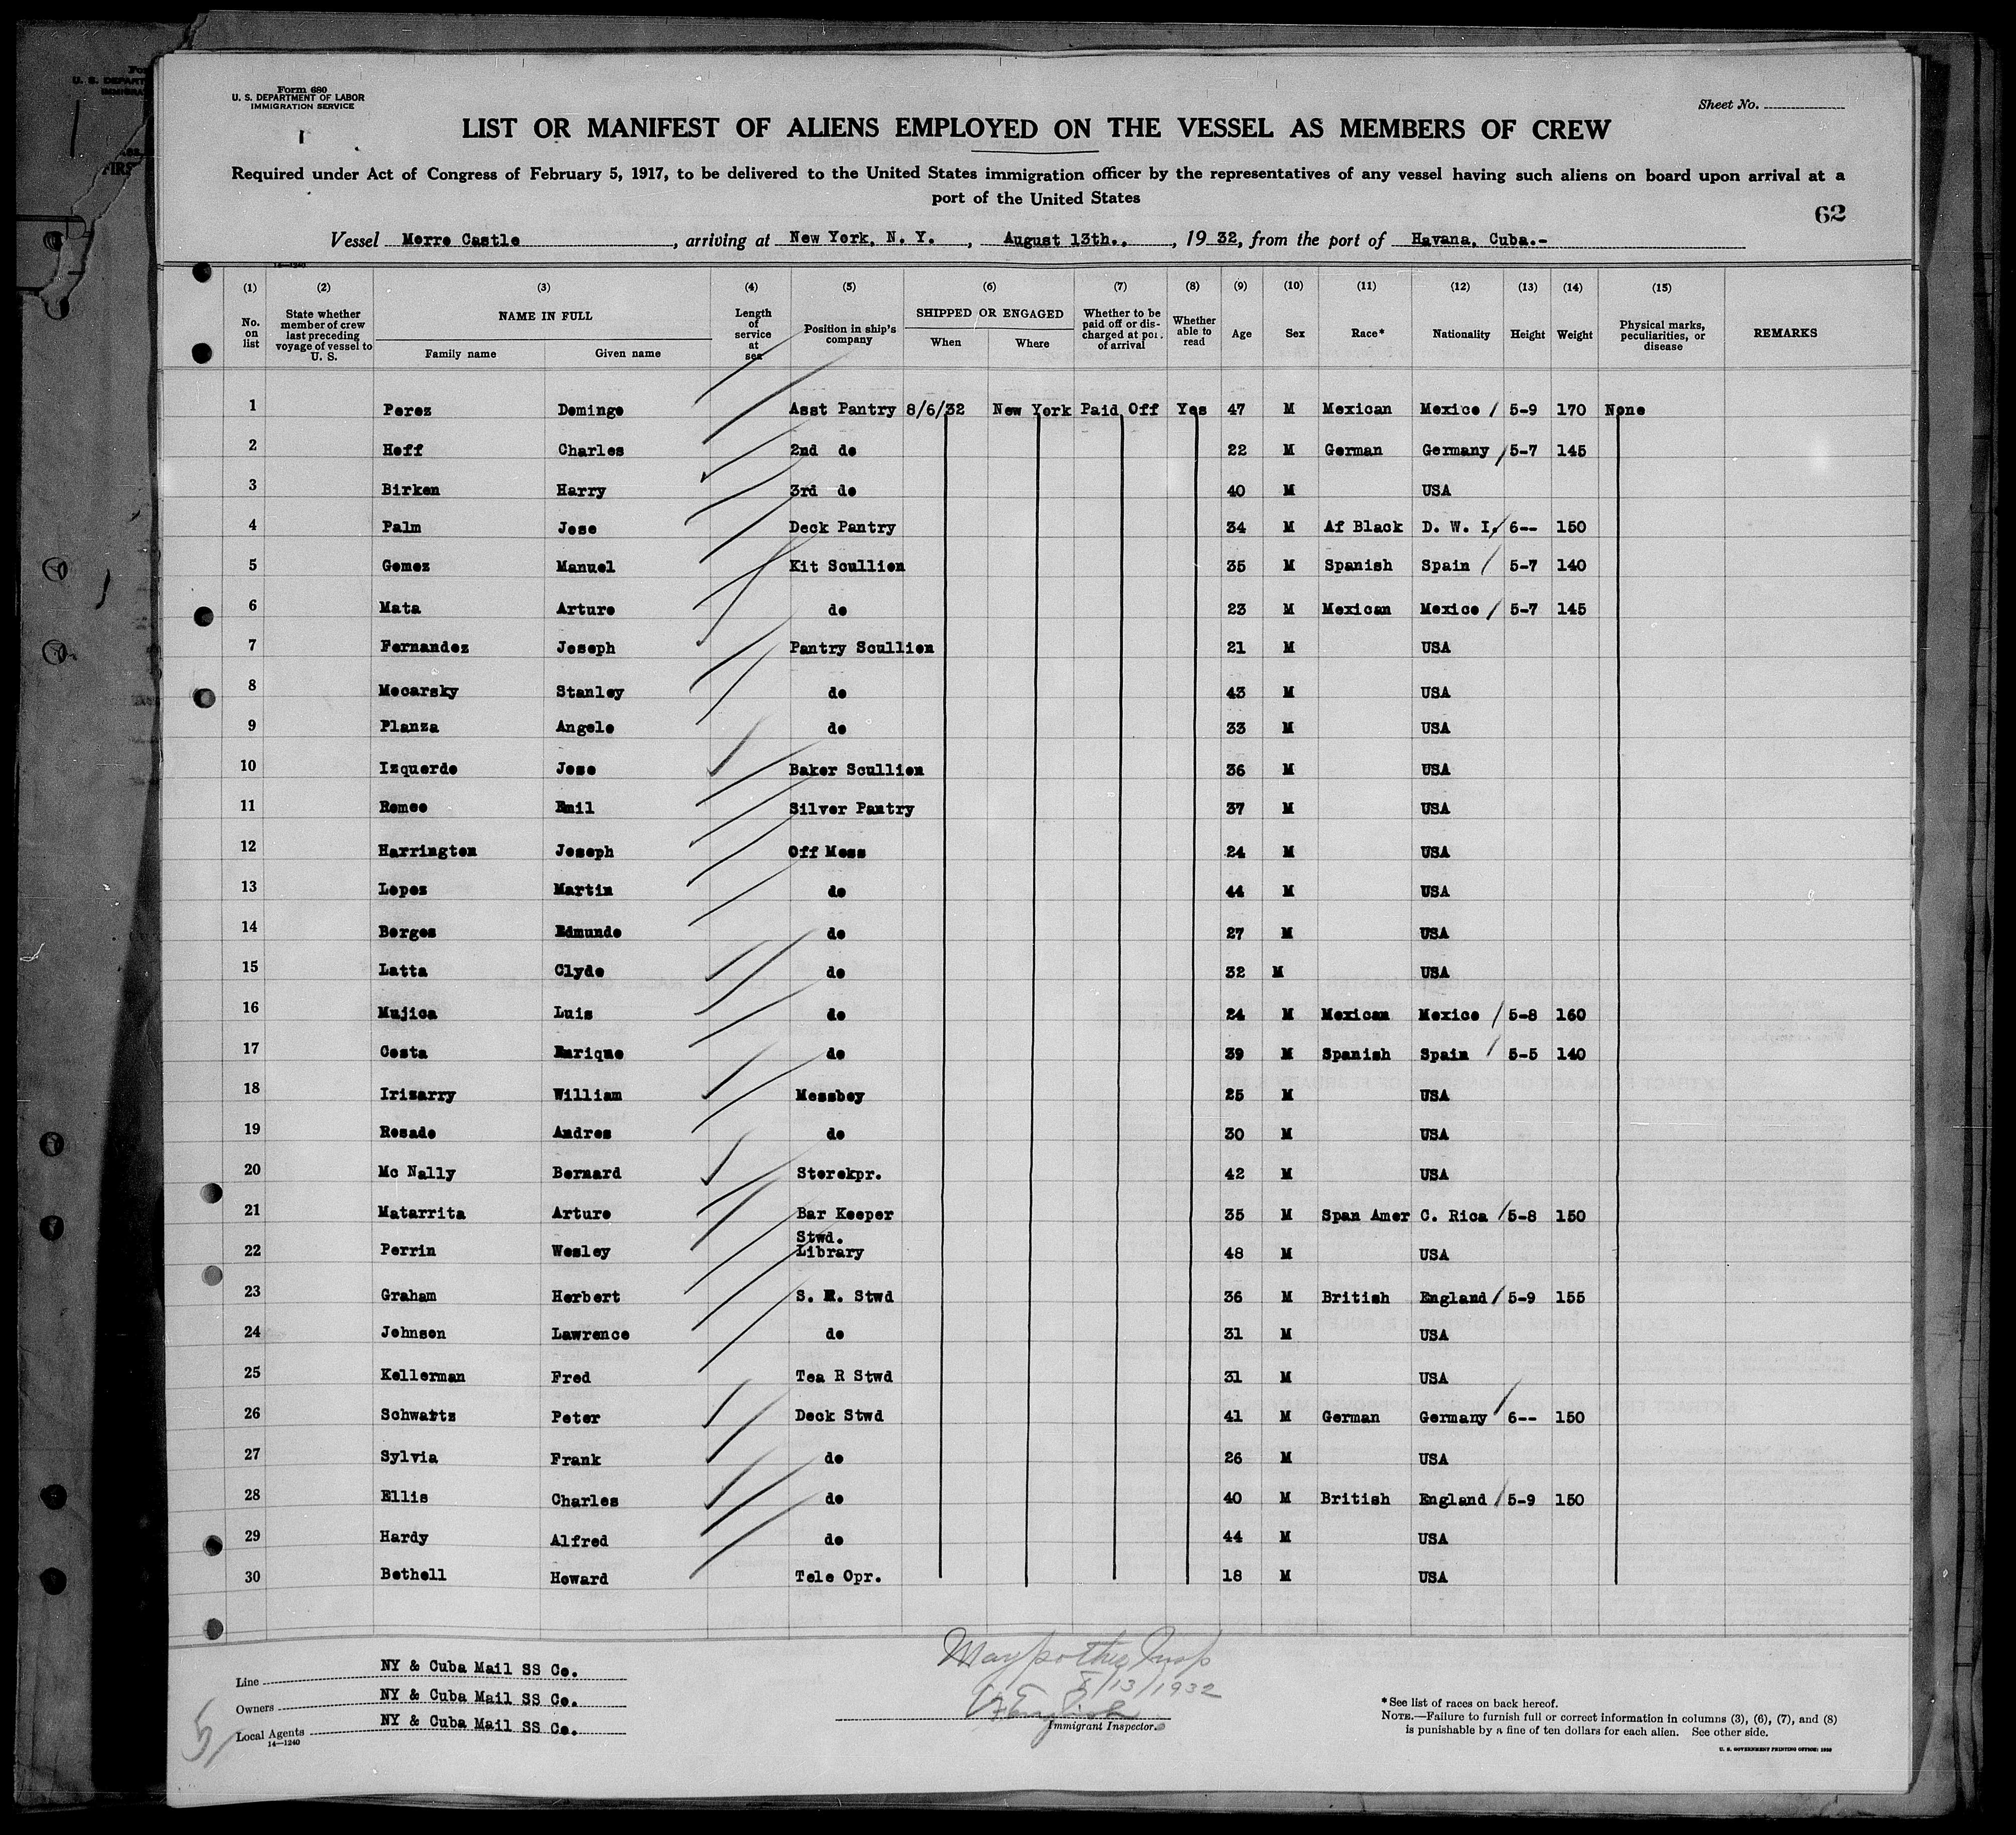 Form 680
U. S. DEPARTMENT OF LABOR
IMMIGRATION SERVICE
Sheet No.
LIST OR MANIFEST OF ALIENS EMPLOYED ON THE VESSEL AS MEMBERS OF CREW
Required under Act of Congress of February 5, 1917, to be delivered to the United States immigration officer by the representatives of any vessel having such aliens on board upon arrival at a
port of the United States
62
Vessel Morro Castle, arriving at New York, N. Y., August 13th., 19 32, from the port of Havana, Cuba.-
(1) (2) (3) (4) (5) (6) (7) (8) (9) (10) (11) (12) (13) (14) (15)
No. on list State whether member of crew last preceding voyage of vessel to U. S. NAME IN FULL Family name Given name Length of service at sea Position in ship's company SHIPPED OR ENGAGED When Where Whether to be paid off or discharged at port of arrival Whether able to read Age Sex Race* Nationality Height Weight Physical marks, peculiarities, or disease REMARKS
1 Perez Domingo Asst Pantry 8/6/32 New York Paid Off Yes 47 M Mexican Mexico 5-9 170 None
2 Hoff Charles 2nd do 22 M German Germany 5-7 145
3 Birken Harry 3rd do 40 M USA
4 Palm Jose Deck Pantry 34 M Af Black D. W. I. 6-- 150
5 Gomez Manuel Kit Scullion 35 M Spanish Spain 5-7 140
6 Mata Arturo do 23 M Mexican Mexico 5-7 145
7 Fernandez Joseph Pantry Scullion 21 M USA
8 Mocarsky Stanley do 43 M USA
9 Planza Angelo do 33 M USA
10 Izquerdo Jose Baker Scullion 36 M USA
11 Romeo Emil Silver Pantry 37 M USA
12 Harrington Joseph Off Mess 24 M USA
13 Lopez Martin do 44 M USA
14 Borges Edmundo do 27 M USA
15 Latta Clyde do 32 M USA
16 Mujica Luis do 24 M Mexican Mexico 5-8 160
17 Costa Enrique do 39 M Spanish Spain 5-5 140
18 Irizarry William Messboy 25 M USA
19 Rosado Andres do 30 M USA
20 Mc Nally Bernard Storekpr. 42 M USA
21 Matarrita Arturo Bar Keeper 35 M Span Amer C. Rica 5-8 150
22 Perrin Wesley Stwd. Library 48 M USA
23 Graham Herbert S. R. Stwd 36 M British England 5-9 155
24 Johnson Lawrence do 31 M USA
25 Kellerman Fred Tea R Stwd 31 M USA
26 Schwartz Peter Deck Stwd 41 M German Germany 6-- 150
27 Sylvia Frank do 26 M USA
28 Ellis Charles do 40 M British England 5-9 150
29 Hardy Alfred do 44 M USA
30 Bethell Howard Tele Opr. 18 M USA
Line NY & Cuba Mail SS Co.
Owners NY & Cuba Mail SS Co.
Local Agents NY & Cuba Mail SS Co.
14—1240
Insp
/13/1932
Immigrant Inspector.
*See list of races on back hereof.
NOTE.—Failure to furnish full or correct information in columns (3), (6), (7), and (8)
is punishable by a fine of ten dollars for each alien. See other side.
U. S. GOVERNMENT PRINTING OFFICE: 1930